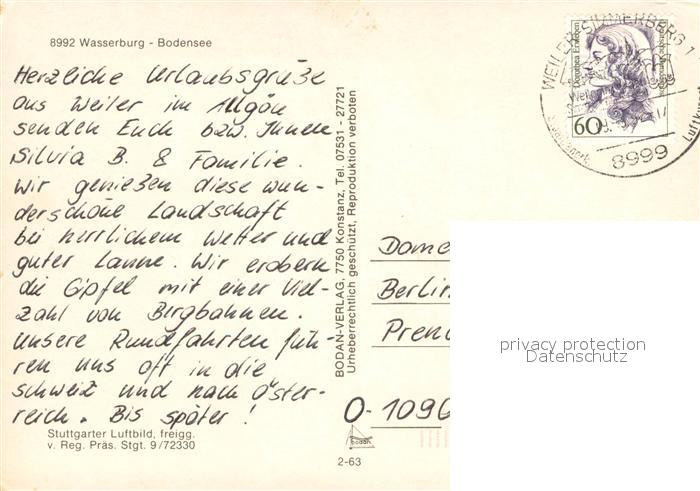 8992 Wasserburg - Bodensee
Herzliche Urlaubsgrüße
aus Weiler im Allgäu
senden Euch bzw. Ihnen
Silvia B. & Familie.
Wir genießen diese wun-
derschöne Landschaft
bei herrlichem Wetter und
guter Laune. Wir erobern
die Gipfel mit einer Viel-
zahl von Bergbahnen.
Unsere Rundfahrten füh-
ren uns oft in die
Schweiz und nach Öster-
reich. Bis später!
Stuttgarter Luftbild, freigg.
v. Reg. Präs. Stgt. 9/72330
BODAN-VERLAG, 7750 Konstanz, Tel. 07531 - 27721
Urheberrechtlich geschützt, Reproduktion verboten
bodan
2-63
WEILER-SIMMERBERG 1
8999
Luftkur
Dorothea Erxleben
60
Dome
Berlin
Pren
O-1090
privacy protection
Datenschutz